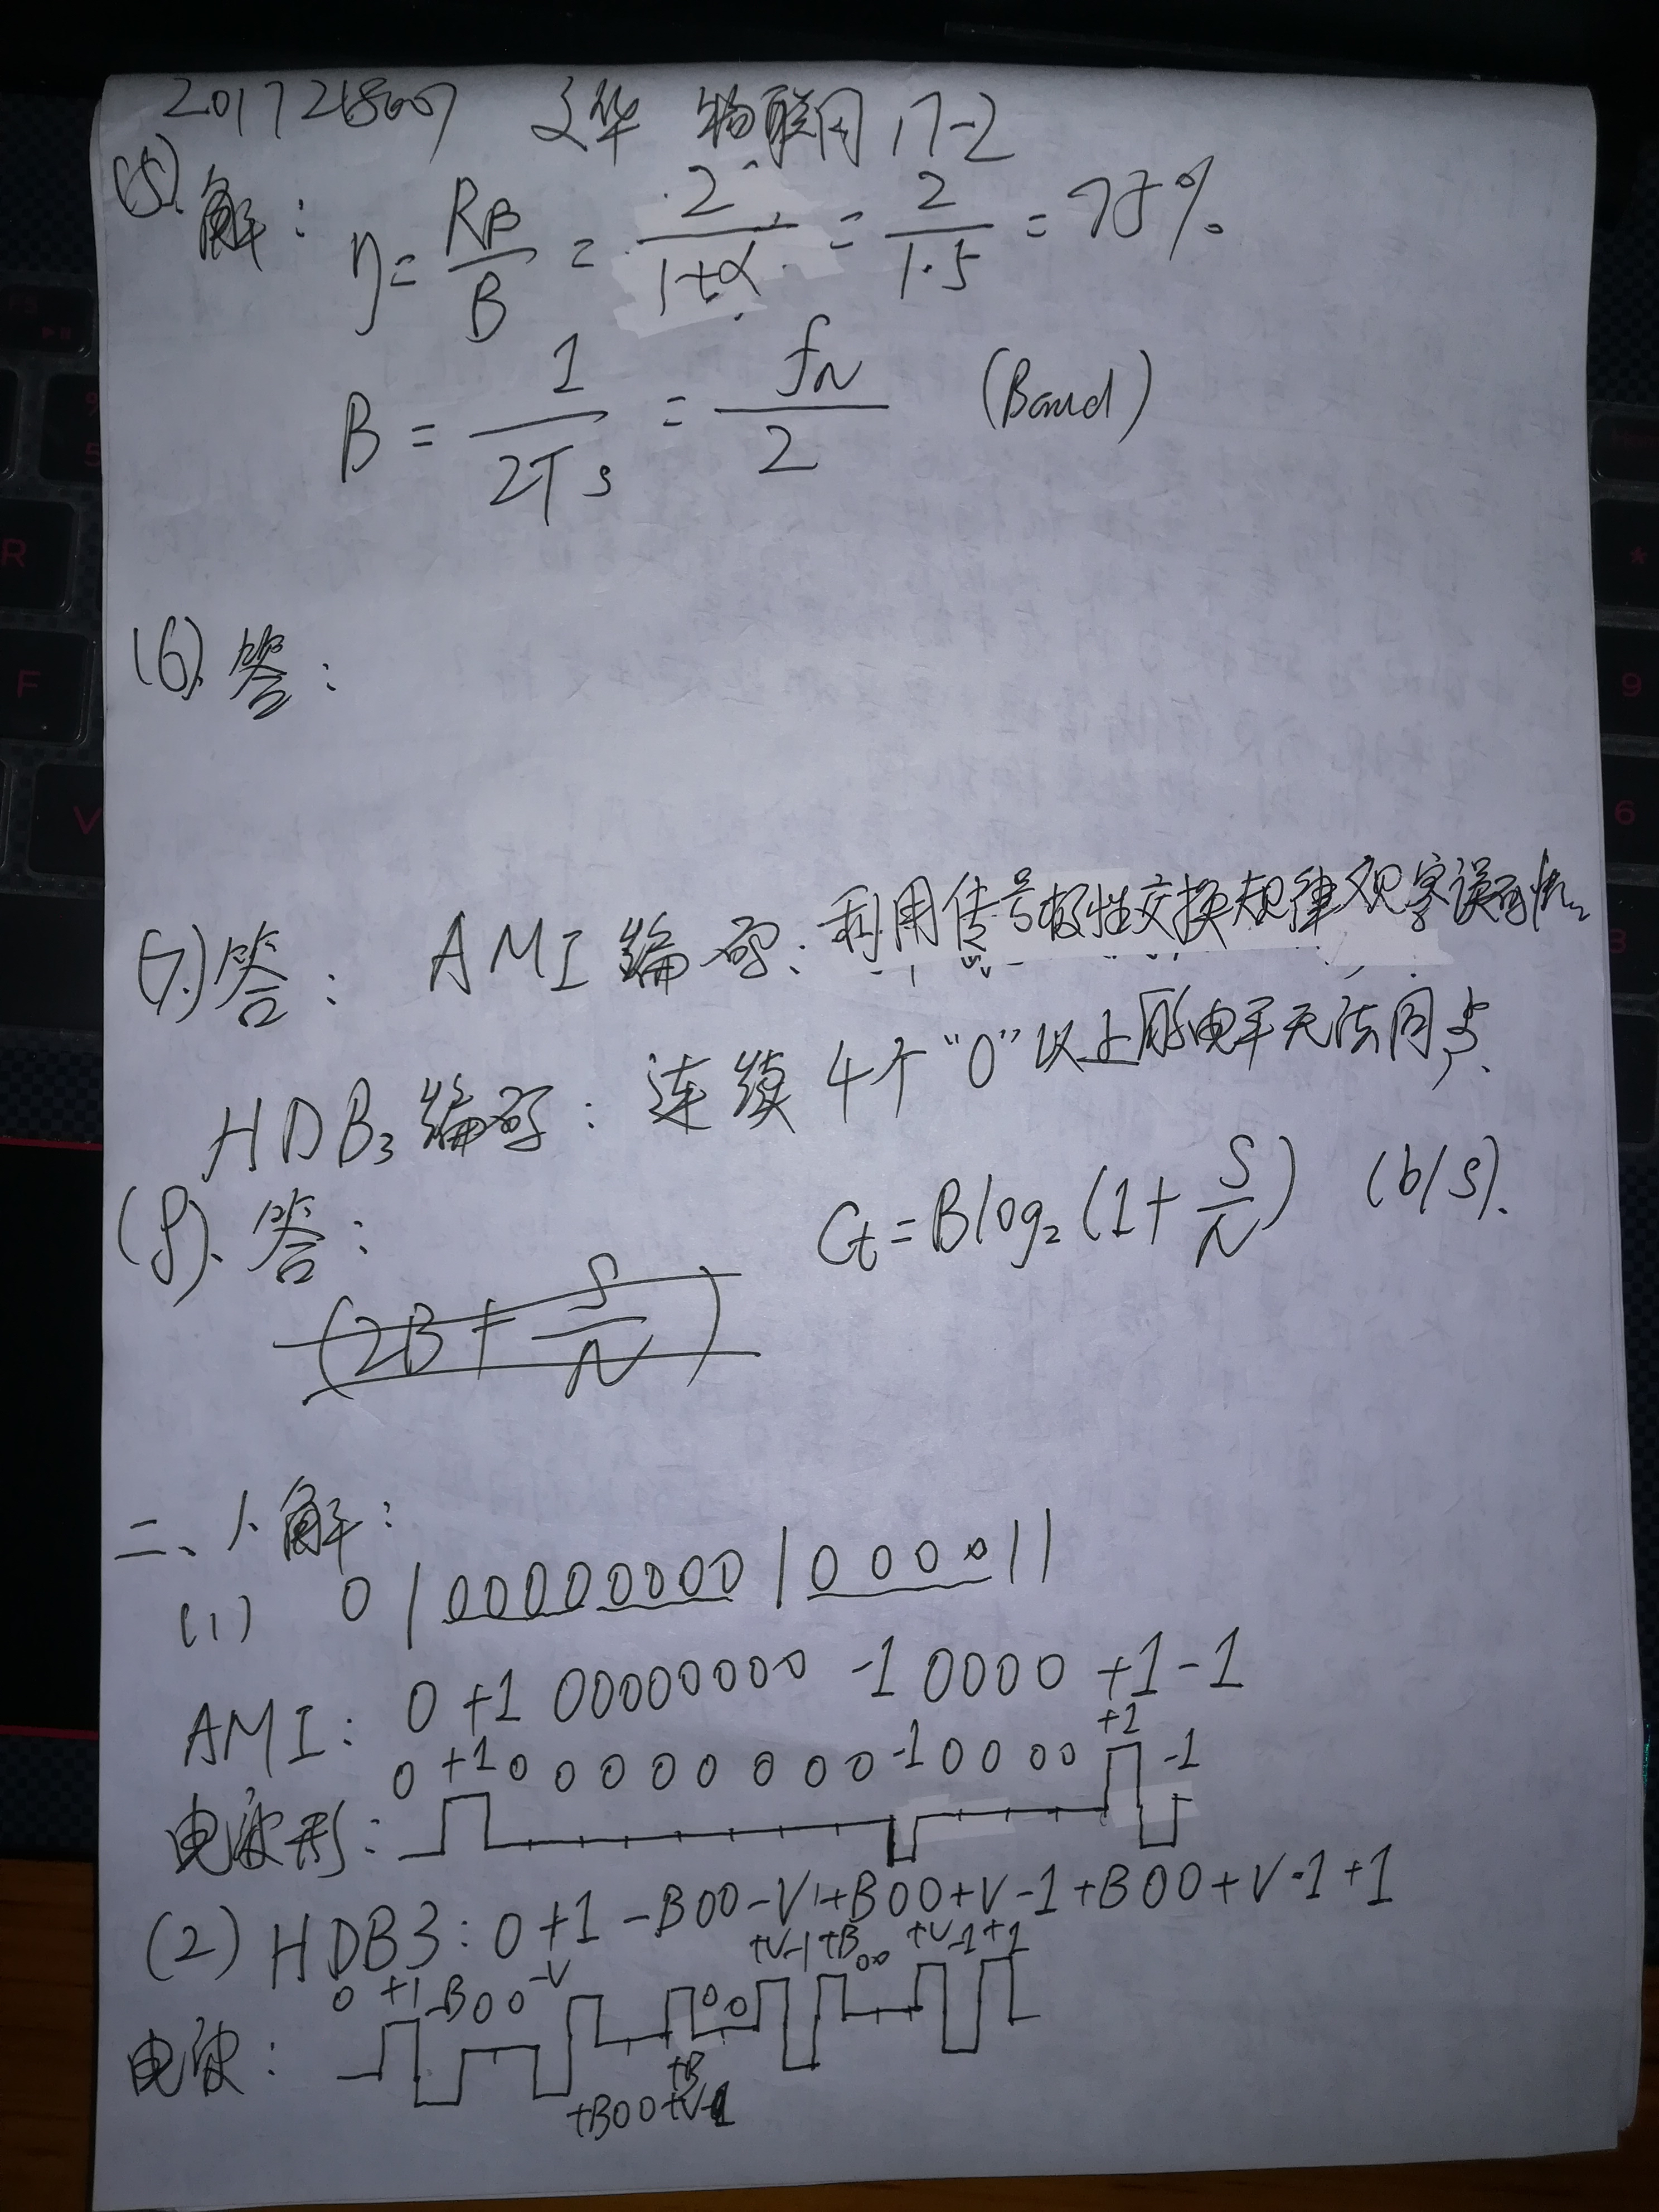 文华 物联网17-2
(5). 解: η = R_B/B = 2/(1+α) = 2/1.5 = 75%.
B = 1/(2Ts) = f_N/2 (Baud)
(6). 答:
(7.)答: AMI编码: 利用信号极性交换规律观察误码情况
HDB₃编码: 连续4个"0"以上 电平无法同步.
(8). 答: Ct = B log₂(1+S/N) (b/s).
(2B + S/N)
二、1. 解:
(1) 0 1 00000000 1 0000 11
AMI: 0 +1 00000000 -1 0000 +1 -1
0 +1 0 0 0 0 0 0 0 0 -1 0 0 0 0 +1 -1
电波形:
(2) HDB3: 0 +1 -B00-V +B00+V -1 +B00+V -1 +1
0 +1 -B00 -V 00 +V -1 +B00 +V -1 +1
电波:
+B
+B00+V-1